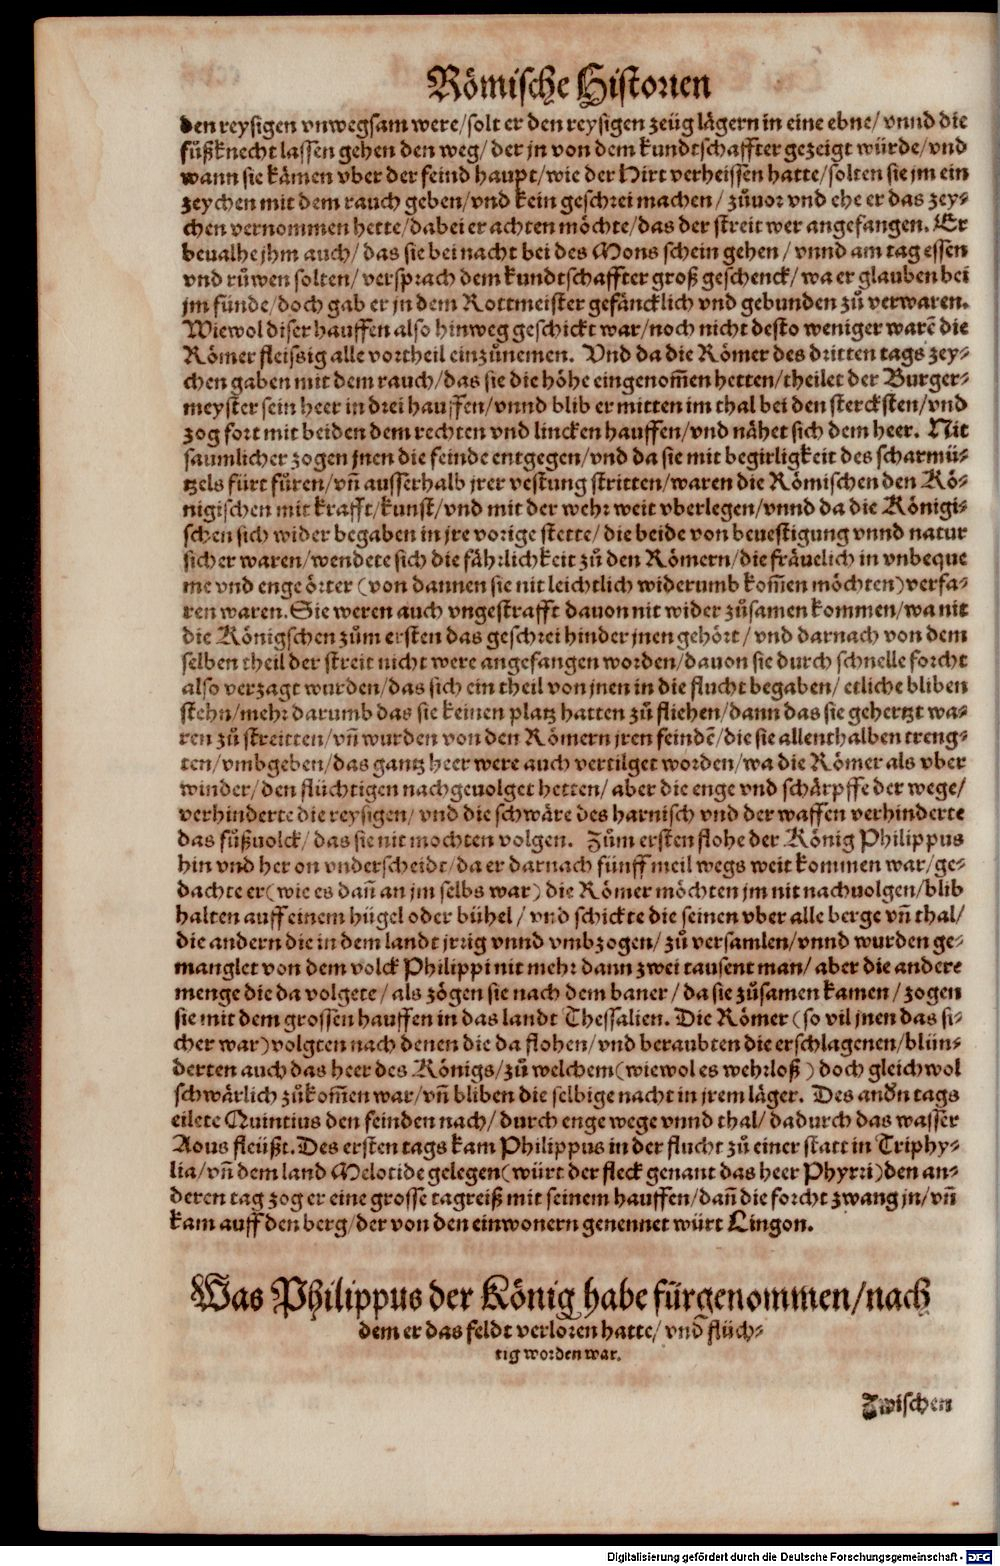 Römische Historien
den reysigen vnwegsam were/solt er den reysigen zeüg lägern in eine ebne/vnnd die
fůßknecht lassen gehen den weg/der jn von dem kundtschaffter gezeigt würde/vnd
wann sie kämen vber der feind haupt/wie der Hirt verheissen hatte/solten sie jm ein
zeychen mit dem rauch geben/vnd kein geschrei machen/zůuor vnd ehe er das zey⸗
chen vernommen hette/dabei er achten möchte/das der streit wer angefangen. Er
beualhe jhm auch/das sie bei nacht bei des Mons schein gehen/vnnd am tag essen
vnd růwen solten/versprach dem kundtschaffter groß geschenck/wa er glauben bei
jm fünde/doch gab er jn dem Rottmeister gefäncklich vnd gebunden zů verwaren.
Wiewol diser hauffen also hinweg geschickt war/noch nicht desto weniger warē die
Römer fleissig alle vortheil einzůnemen. Vnd da die Römer des dritten tags zey⸗
chen gaben mit dem rauch/das sie die höhe eingenom̄en hetten/theilet der Burger⸗
meyster sein heer in drei hauffen/vnnd blib er mitten im thal bei den stercksten/vnd
zog fort mit beiden dem rechten vnd lincken hauffen/vnd nähet sich dem heer. Nit
saumlicher zogen jnen die feinde entgegen/vnd da sie mit begirligkeit des scharmü⸗
tzels fürt füren/vn̄ ausserhalb jrer vestung stritten/waren die Römischen den Kö⸗
nigischen mit krafft/kunst/vnd mit der wehr weit vberlegen/vnnd da die Königi⸗
schen sich wider begaben in jre vorige stette/die beide von beuestigung vnnd natur
sicher waren/wendete sich die fährlichkeit zů den Römern/die fräuelich in vnbeque
me vnd enge örter (von dannen sie nit leichtlich widerumb kom̄en möchten) verfa⸗
ren waren. Sie weren auch vngestrafft dauon nit wider zůsamen kommen/wa nit
die Königschen zům ersten das geschrei hinder jnen gehört/vnd darnach von dem
selben theil der streit nicht were angefangen worden/dauon sie durch schnelle forcht
also verzagt wurden/das sich ein theil von jnen in die flucht begaben/etliche bliben
stehn/mehr darumb das sie keinen platz hatten zů fliehen/dann das sie gehertzt wa⸗
ren zů streitten/vn̄ wurden von den Römern jren feindē/die sie allenthalben treng⸗
ten/vmbgeben/das gantz heer were auch vertilget worden/wa die Römer als vber
winder/den flüchtigen nachgeuolget hetten/aber die enge vnd schärpffe der wege/
verhinderte die reysigen/vnd die schwäre des harnisch vnd der waffen verhinderte
das fůßuolck/das sie nit mochten volgen. Zům ersten flohe der König Philippus
hin vnd her on vnderscheidt/da er darnach fünff meil wegs weit kommen war/ge⸗
dachte er (wie es dan̄ an jm selbs war) die Römer möchten jm nit nachuolgen/blib
halten auff einem hügel oder bühel/vnd schickte die seinen vber alle berge vn̄ thal/
die andern die in dem landt jrrig vnnd vmbzogen/zů versamlen/vnnd wurden ge⸗
manglet von dem volck Philippi nit mehr dann zwei tausent man/aber die andere
menge die da volgete/als zögen sie nach dem baner/da sie zůsamen kamen/zogen
sie mit dem grossen hauffen in das landt Thessalien. Die Römer (so vil jnen das si⸗
cher war) volgten nach denen die da flohen/vnd beraubten die erschlagenen/blün⸗
derten auch das heer des Königs/zů welchem (wiewol es wehrloß) doch gleichwol
schwärlich zůkom̄en war/vn̄ bliben die selbige nacht in jrem läger. Des andn̄ tags
eilete Quintius den feinden nach/durch enge wege vnnd thal/dadurch das wasser
Aous fleüßt. Des ersten tags kam Philippus in der flucht zů einer statt in Triphy⸗
lia/vn̄ dem land Melotide gelegen (würt der fleck genant das heer Phyrri) den an⸗
deren tag zog er eine grosse tagreiß mit seinem hauffen/dan̄ die forcht zwang jn/vn̄
kam auff den berg/der von den einwonern genennet würt Lingon.
Was Philippus der König habe fürgenommen/nach
dem er das feldt verloren hatte/vnd flüch⸗
tig worden war.
Zwischen
Digitalisierung gefördert durch die Deutsche Forschungsgemeinschaft - DFG